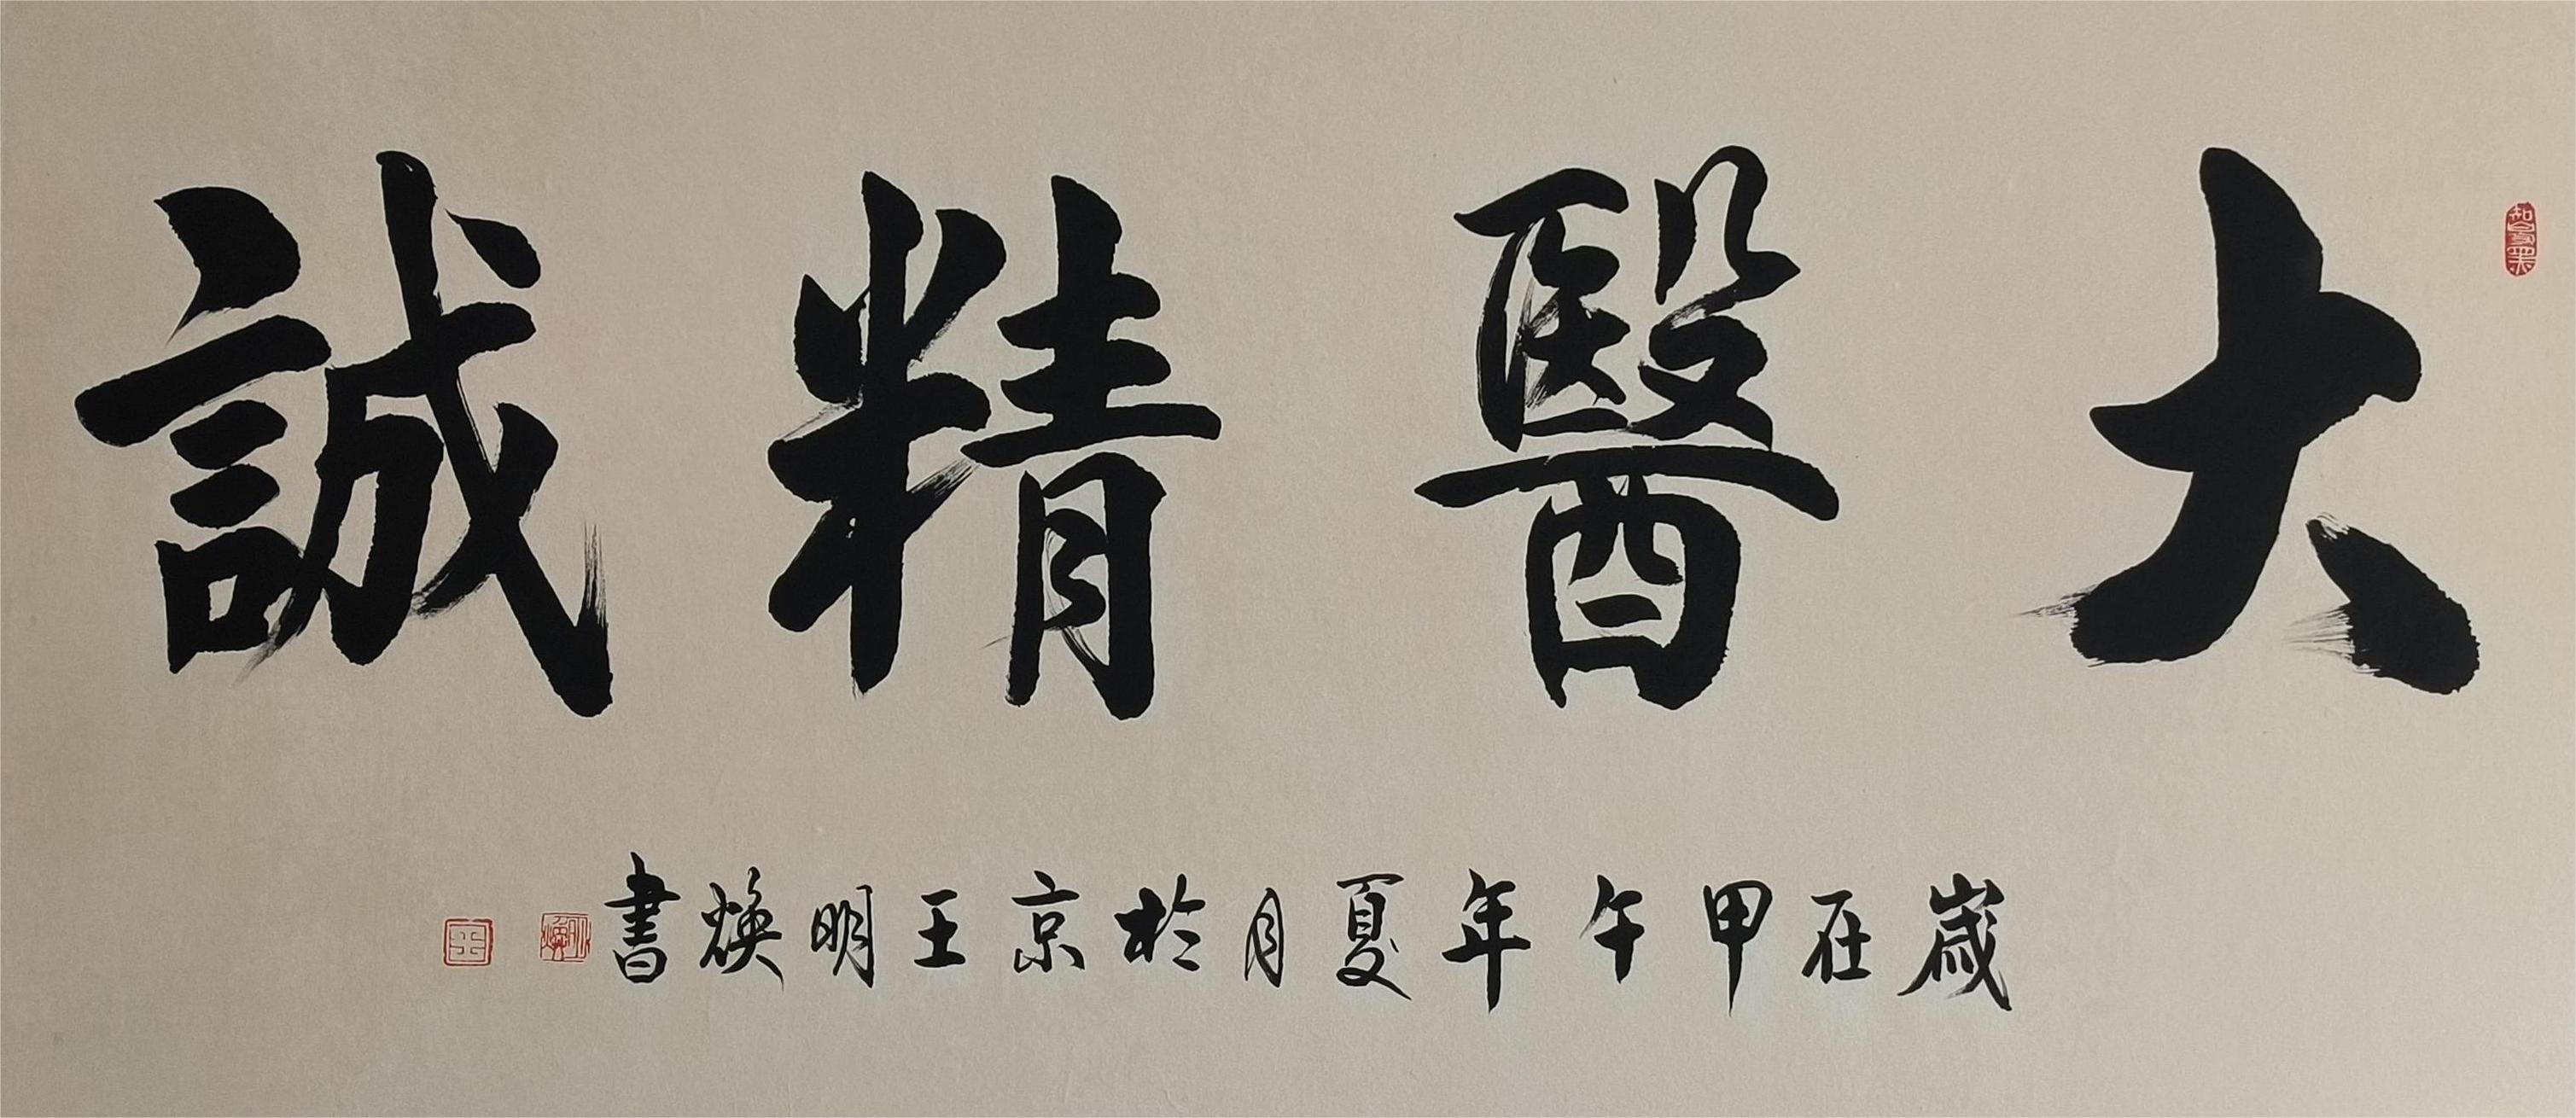 大醫精誠
歲在甲午年夏月於京王明煥書